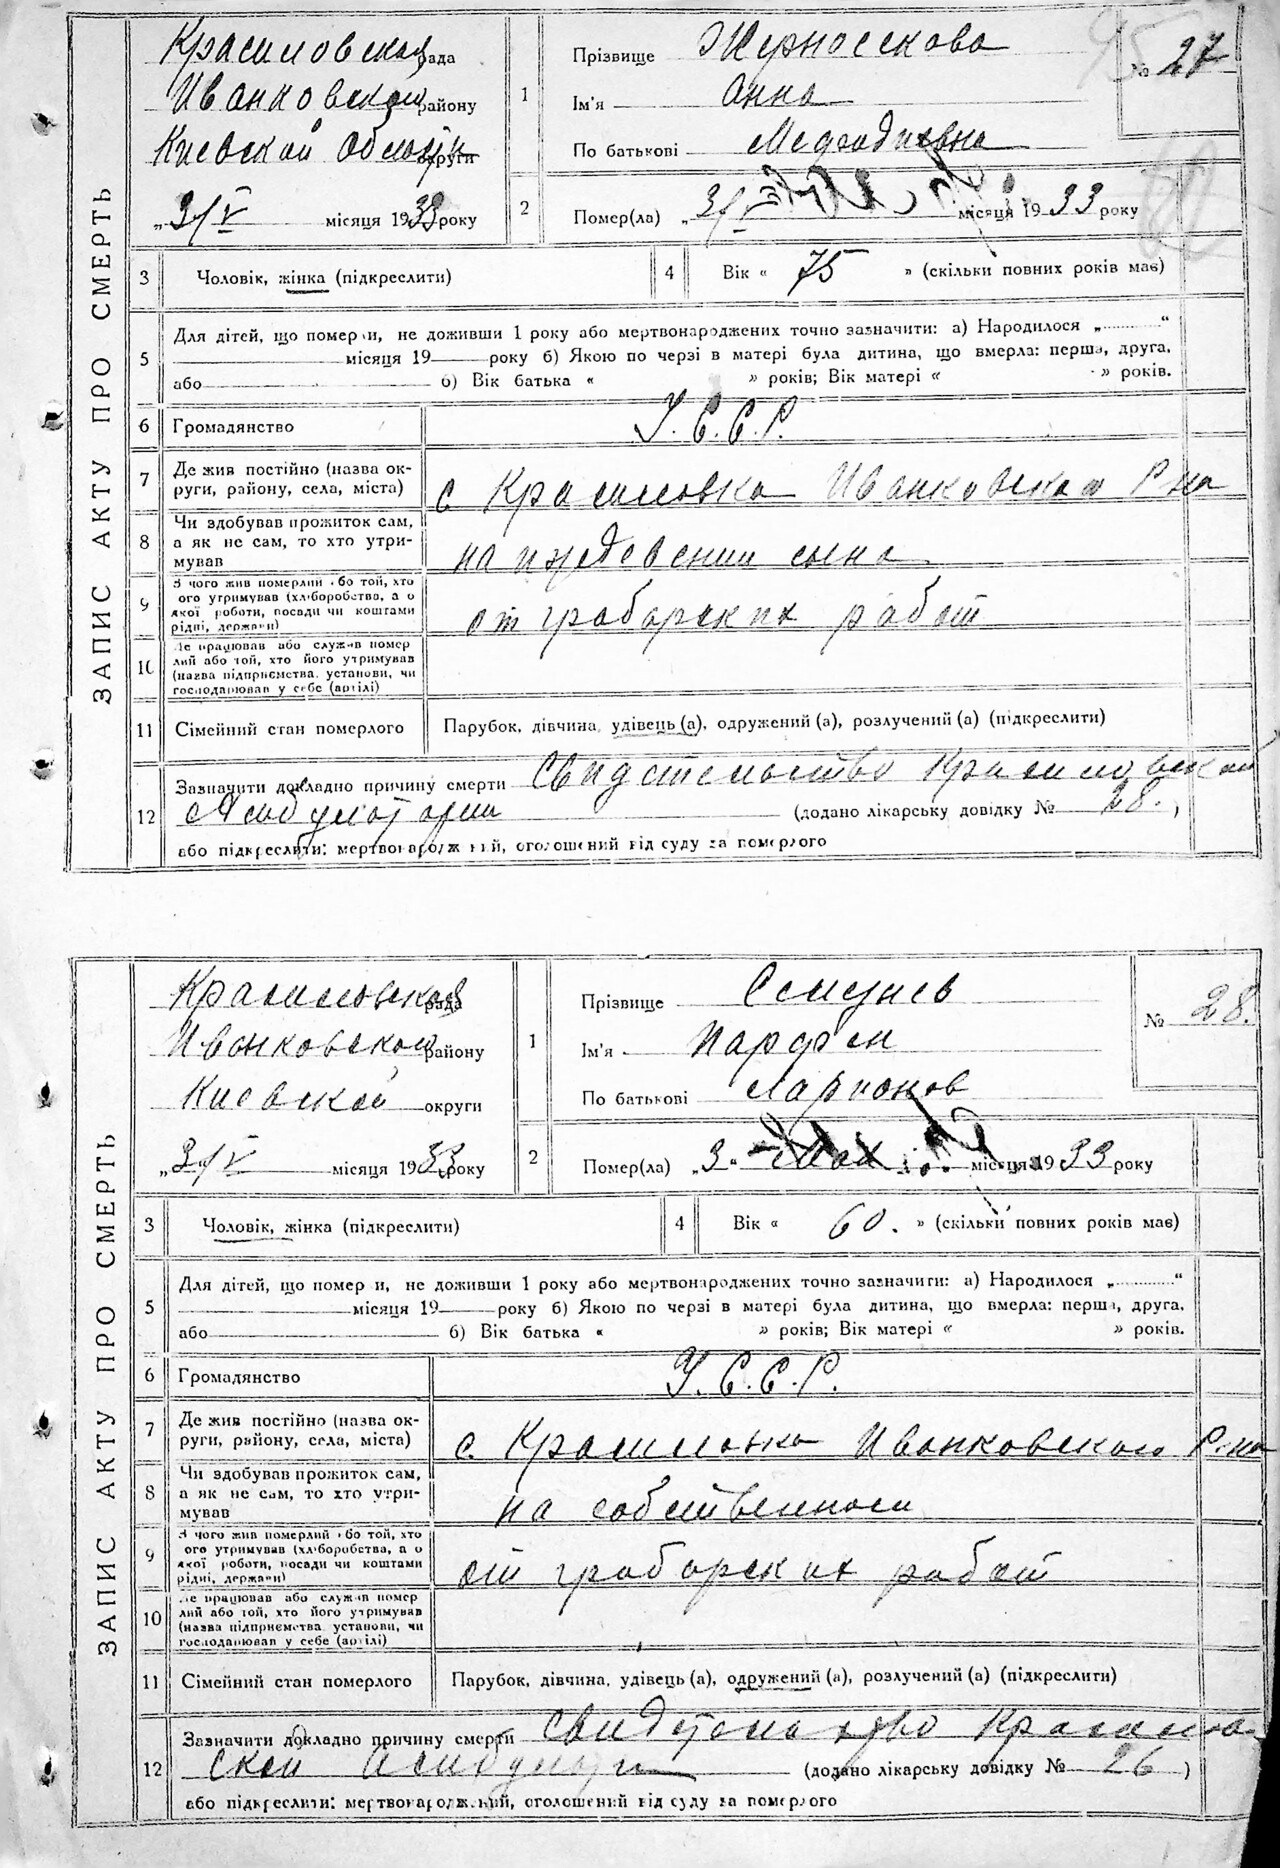 ЗАПИС АКТУ ПРО СМЕРТЬ
Красиловская рада
Иванковском району
Киевской области округи
„3/V місяця 1933 року
1
Прізвище Жерносекова
Ім'я Анна
По батькові
№ 27
2
Помер(ла) „3/V місяця 1933 року
3
Чоловік, жінка (підкреслити)
4
Вік « 75 » (скільки повних років має)
5
Для дітей, що померли, не доживши 1 року або мертвонароджених точно зазначити: а) Народилося „ “
місяця 19 року б) Якою по черзі в матері була дитина, що вмерла: перша, друга,
або б) Вік батька « » років; Вік матері « » років.
6
Громадянство
У.С.С.Р.
7
Де жив постійно (назва ок-
руги, району, села, міста)
с Красиловка Иванковского Р на
8
Чи здобував прожиток сам,
а як не сам, то хто утри-
мував
на иждевении сына
9
З чого жив померлий або той, хто
його утримував (хліборобства, а о
якої роботи, посади чи коштами
рідні, держави)
от грабарских работ
10
Де працював або служив помер
лий або той, хто його утримував
(назва підприємства, установи, чи
господарював у себе (артілі)
11
Сімейний стан померлого
Парубок, дівчина, удівець (а), одружений (а), розлучений (а) (підкреслити)
12
Зазначити докладно причину смерти Свидетельство Красиловской
Амбулатории (додано лікарську довідку № 28. )
або підкреслити: мертвонароджений, оголошений від суду за померлого
ЗАПИС АКТУ ПРО СМЕРТЬ
Красиловская рада
Иванковском району
Киевской округи
„3/V місяця 1933 року
1
Прізвище
Ім'я Парфен
По батькові Ларионов
№ 28.
2
Помер(ла) „3“ мая місяця 1933 року
3
Чоловік, жінка (підкреслити)
4
Вік « 60. » (скільки повних років має)
5
Для дітей, що померли, не доживши 1 року або мертвонароджених точно зазначити: а) Народилося „ “
місяця 19 року б) Якою по черзі в матері була дитина, що вмерла: перша, друга,
або б) Вік батька « » років; Вік матері « » років.
6
Громадянство
У.С.С.Р.
7
Де жив постійно (назва ок-
руги, району, села, міста)
с. Красиловка Иванковского Р-на
8
Чи здобував прожиток сам,
а як не сам, то хто утри-
мував
на собственном
9
З чого жив померлий або той, хто
його утримував (хліборобства, а о
якої роботи, посади чи коштами
рідні, держави)
от грабарских работ
10
Де працював або служив помер
лий або той, хто його утримував
(назва підприємства, установи, чи
господарював у себе (артілі)
11
Сімейний стан померлого
Парубок, дівчина, удівець (а), одружений (а), розлучений (а) (підкреслити)
12
Зазначити докладно причину смерти Свидетельство Красилов
ской (додано лікарську довідку № 26 )
або підкреслити: мертвонароджений, оголошений від суду за померлого